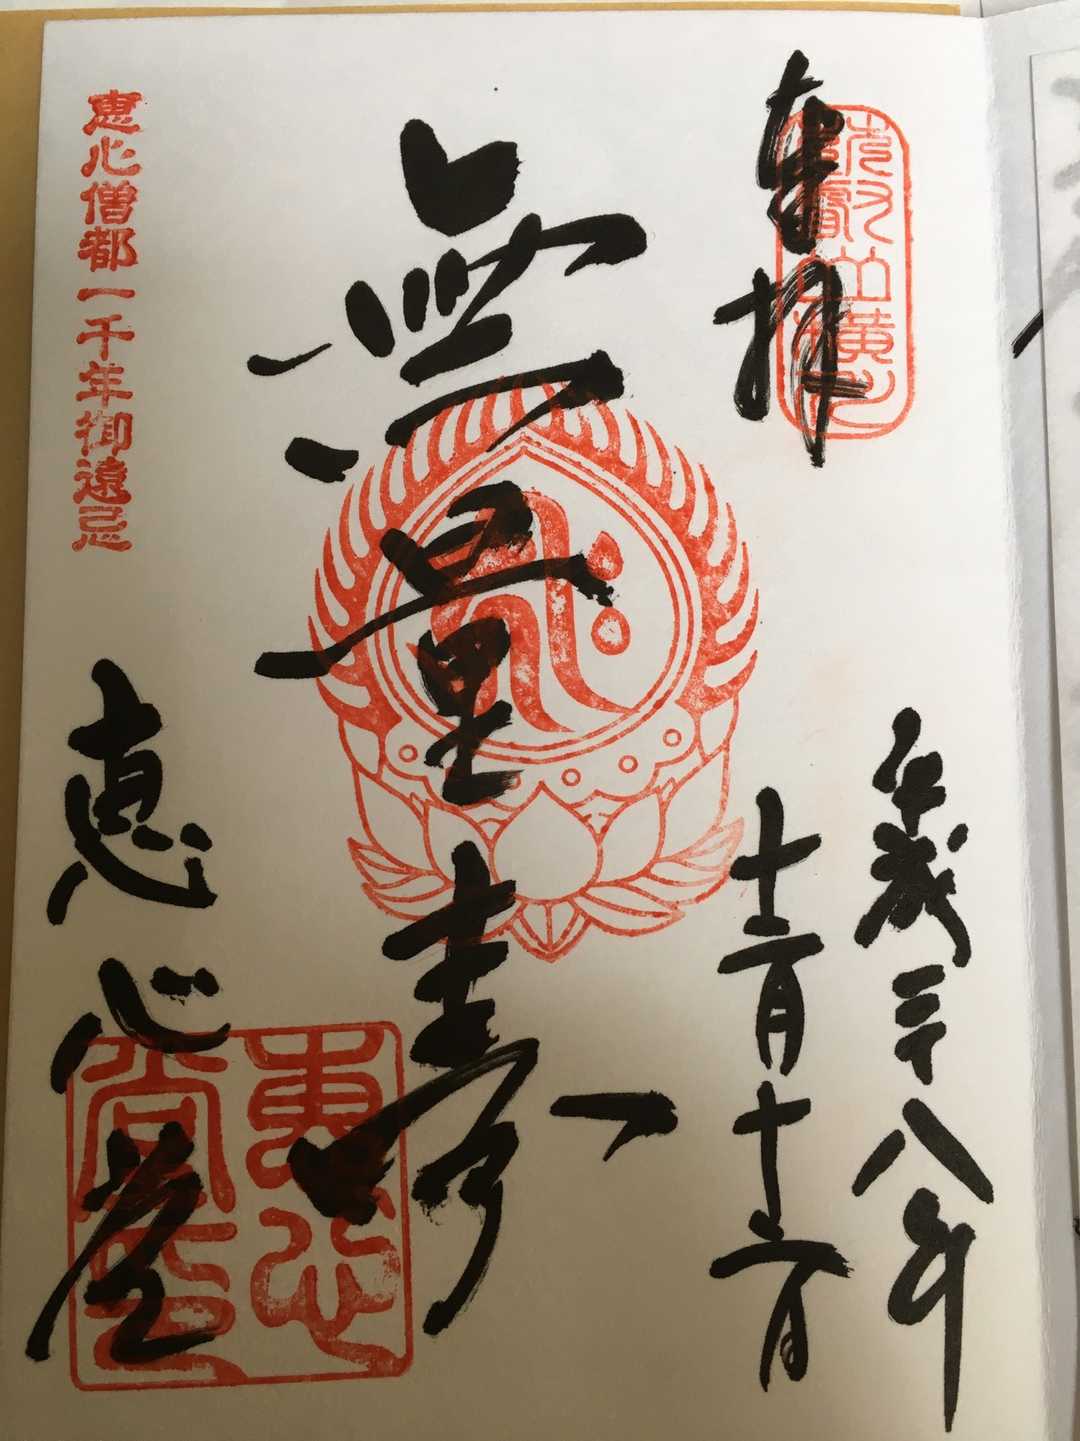 奉拝
比叡山横川
平成二十八年
十二月十二日
無量寿
恵心僧都一千年御遠忌
恵心堂
恵心堂印